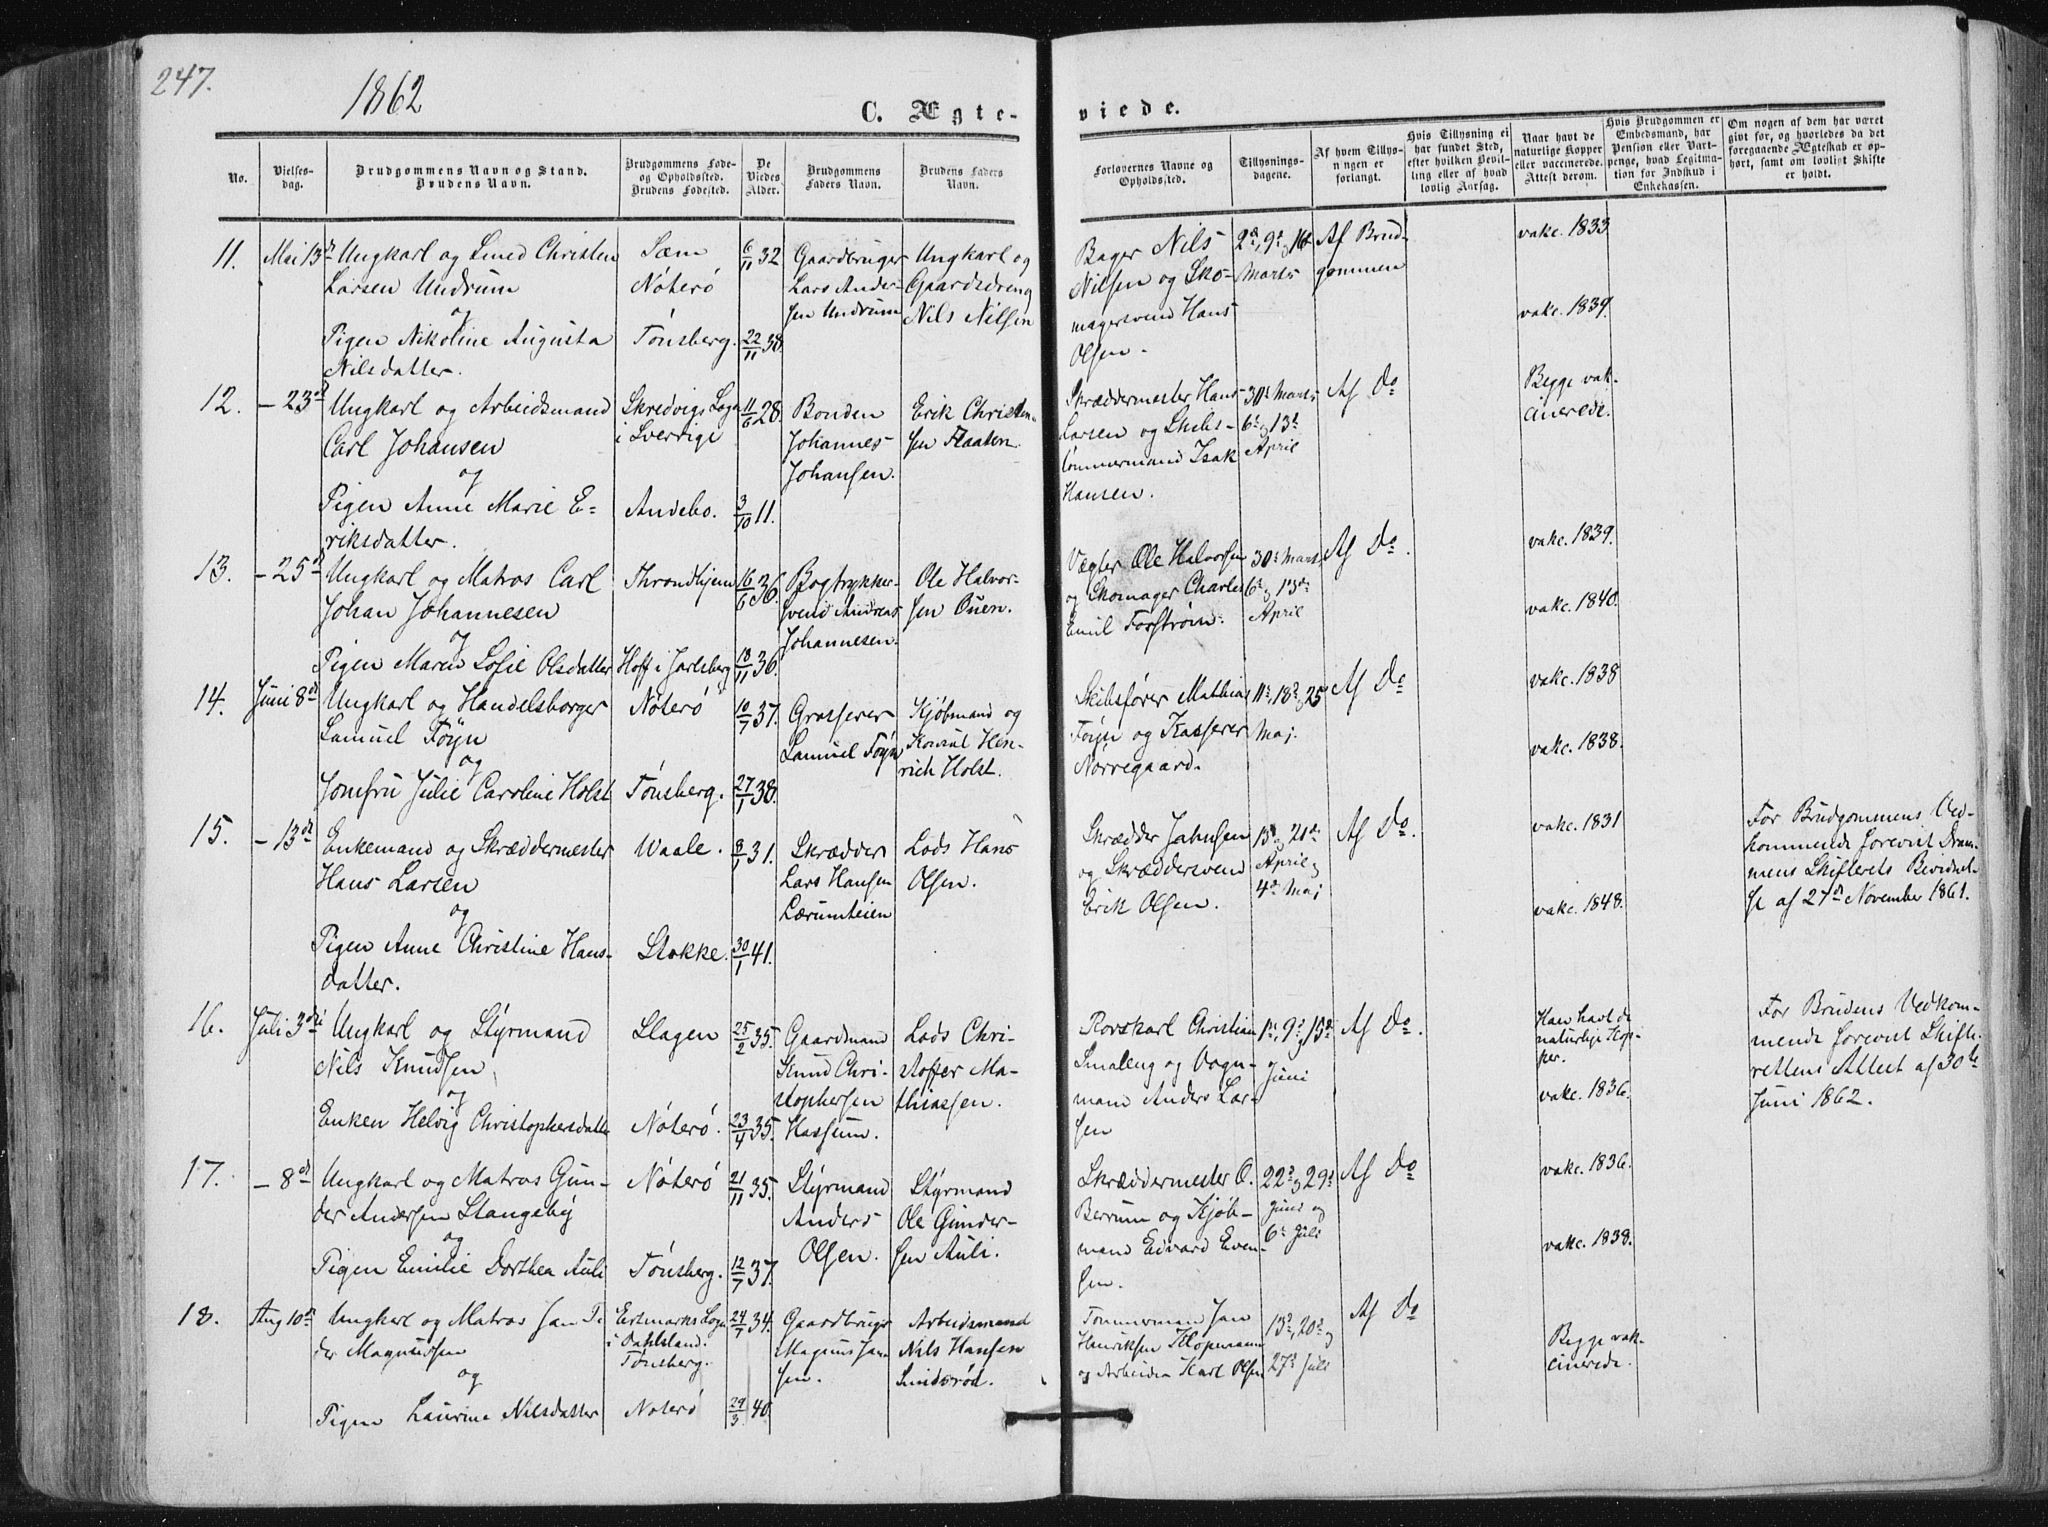 247.
1862
C. Ægteviede.
No.
Vielsesdag.
Brudgommens Navn og Stand.
Brudens Navn.
Brudgommens Føde-
og Opholdssted.
Brudens Fødested.
De
Viedes
Alder.
Brudgommens
Faders Navn.
Brudens Faders
Navn.
Forlovernes Navne og
Opholdssted.
Tillysnings-
dagene.
Af hvem Tillys-
ningen er
forlangt.
Hvis Tillysning ei
har fundet Sted,
efter hvilken Bevil-
ling eller af hvad
lovlig Aarsag.
Naar havt de
naturlige Kopper
eller vaccinerede.
Attest derom.
Hvis Brudgommen er
Embedsmand, har
Pension eller Vart-
penge, hvad Legitima-
tion for Indskud i
Enkekassen.
Om nogen af dem har været
givt før, og hvorledes da det
foregaaende Ægteskab er op-
hørt, samt om lovligt Skifte
er holdt.
11. Mai 13de
Ungkarl og Smed Christen
Larsen Undrum
og
Pigen Nikoline Augusta
Nilsdatter.
Sæm
Nøterø
Tønsberg.
6/11 32
22/11 38.
Gaardbruger
Lars Ander-
sen Undrum
Ungkarl og
Gaardsdreng
Nils Nilsen
Bager Nils
Nilsen og Sko-
magersvend Hans
Olsen.
2den, 9de, 16de
Marts
Af Brud-
gommen
vakc. 1833
vakc. 1839.
12. - 23de
Ungkarl og Arbeidsmand
Carl Johansen
og
Pigen Anne Marie E-
riksdatter.
Skredvigs Sogn
i Sverrige
Andebo.
11/6 28.
3/10 11.
Bonden
Johannes
Johansen.
Erik Christen-
sen Flaaten
Skræddermester Hans
Larsen og Skibs-
tømmermand Isak
Hansen.
30te Marts
6te, 13de
April
Af Do
Begge vak-
cinerede.
13. - 25de
Ungkarl og Matros Carl
Johan Johannesen
og
Pigen Maren Sofie Olsdatter
Throndhjem
Hoff i Jarlsberg
16/6 36.
18/11 36.
Bogtrykker-
svend Andreas
Johannesen.
Ole Halvor-
sen Buen.
Vægter Ole Halvorsen
og Skomager Charles
Emil Forstrøm.
30te Marts
6te og 13de
April
Af Do.
vakc. 1839.
vakc. 1840.
14. Juni 8de
Ungkarl og Handelsborger
Samuel Føyn
og
Jomfru Julie Caroline Holst
Nøterø
Tønsberg.
10/7 37.
27/1 38.
Grosserer
Samuel Føyn
Kjøbmand og
Konsul Hen-
rich Holst.
Skibsfører Mathias
Føyn og Kasserer
Norregaard.
11te, 18de, 25
Maj.
Af Do
vakc. 1838
vakc. 1838.
15. - 13de
Enkemand og Skræddermester
Hans Larsen
og
Pigen Anne Christine Hans-
datter.
Waale.
Stokke.
8/1 31.
30/1 41.
Skrædder
Lars Hansen
Lærumteien
Lods Hans
Olsen.
Skrædder Jahnsen
og Skræddersvend
Erik Olsen.
13de og 21de
April og
4de Maj
Af Do.
vakc. 1831
vakc. 1848.
For Brudgommens Ved-
kommende forevist Dram-
mens Skifterets Bevidnel-
se af 27de November 1861.
16. Juli 3die
Ungkarl og Styrmand
Nils Knudsen
og
Enken Helvig Christophersdatter
Slagen
Nøterø.
25/2 35.
23/4 35.
Gaardmand
Knud Chri-
stophersen
Hassum.
Lods Chri-
stoffer Ma-
thiassen.
Rorskarl Christian
Smaleng og Vogn-
mand Anders Lar-
sen
1ste, 9de, 15de
Juni
Af Do.
Han havt de
naturlige Kop-
per.
vakc. 1836.
For Brudens Vedkom-
mende forevist Skifte-
rettens Attest af 30te
Juni 1862.
17. - 8de
Ungkarl og Matros Gun-
der Andersen Stangeby
og
Pigen Emilie Dorthea Auli
Nøterø
Tønsberg.
21/11 35.
12/7 37.
Styrmand
Anders
Olsen.
Styrmand
Ole Gunder-
sen Auli.
Skræddermester O.
Berrum og Kjøb-
mand Edvard Even-
sen.
22de, 29de
Juni og
6te Juli
Af Do
vakc. 1836.
vakc. 1838.
18. Aug 10de
Ungkarl og Matros Jan Pe-
der Magnussen
og
Pigen Laurine Nilsdatter
Ertmarks Sogn
i Dahlsland.
Tønsberg.
Nøterø
24/7 34.
29/3 40.
Gaardbruger
Magnus Jan-
sen.
Arbeidsmand
Nils Hansen
Smidsrød.
Tømmermand Jan
Henriksen Klopmann
og Arbeider Karl Olsen
13de, 20de og
27de Juli
Af Do
Begge vak-
cinerede.